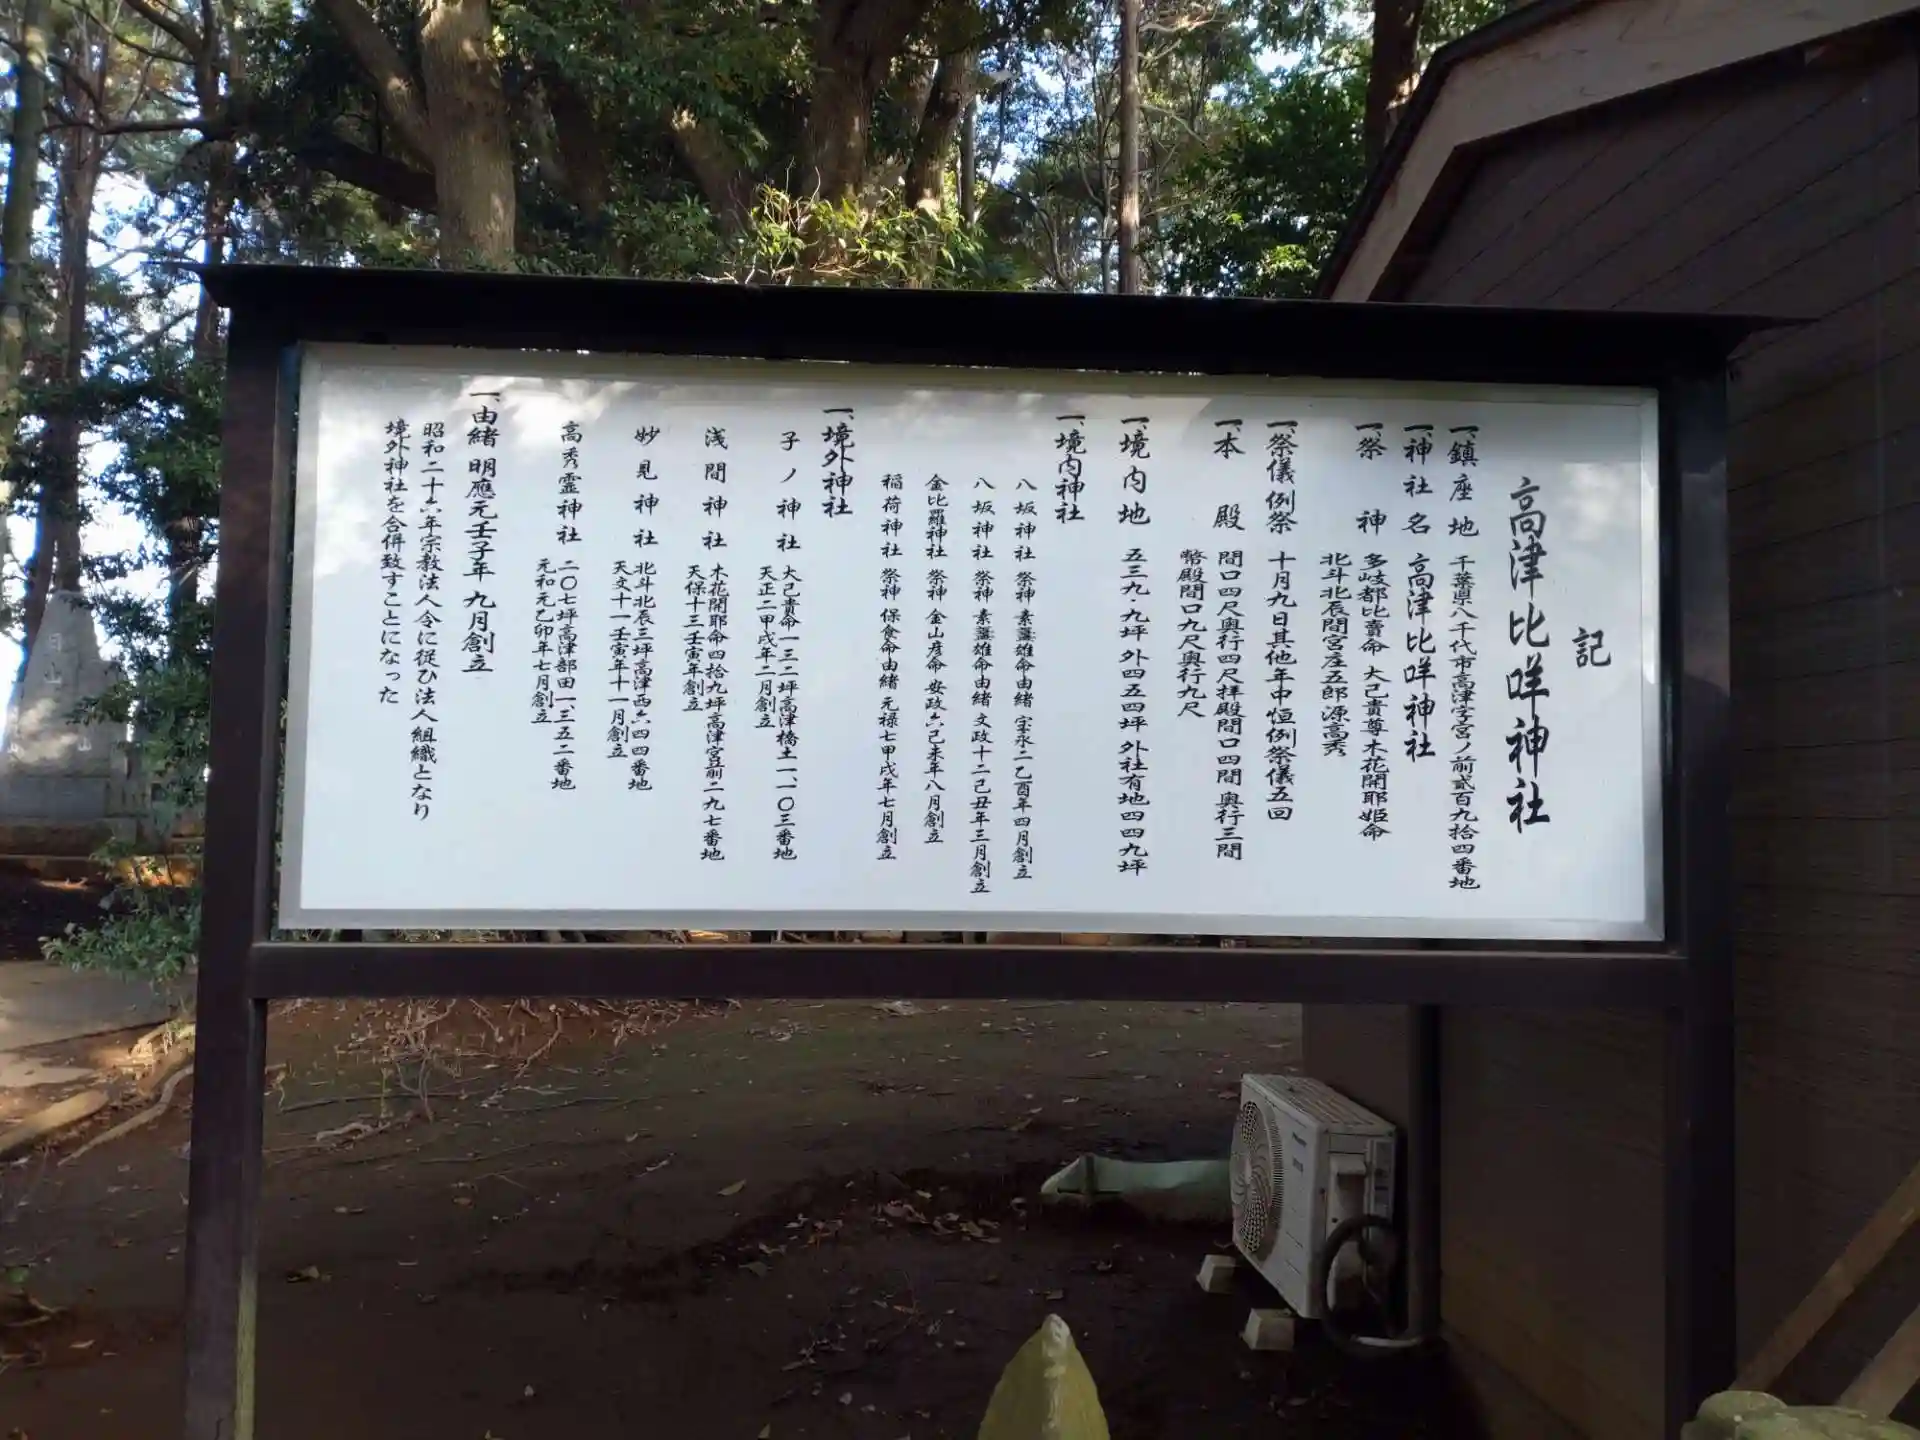 記
高津比咩神社
一、鎮座地 千葉県八千代市高津字宮ノ前貳百九拾四番地
一、神社名 高津比咩神社
一、祭神 多岐都比賣命 大己貴尊 木花開耶姫命
北斗北辰間宮庄五郎源高秀
一、祭儀例祭 十月九日其他年中恒例祭儀五回
一、本殿 間口四尺奥行四尺拝殿間口四間奥行三間
幣殿間口九尺奥行九尺
一、境内地 五三九・九坪 外四五四坪 外社有地四四九坪
一、境内神社
八坂神社 祭神 素盞雄命由緒 宝永二乙酉年四月創立
八坂神社 祭神 素盞雄命由緒 文政十二己丑年三月創立
金比羅神社 祭神 金山彦命 安政六己未年八月創立
稲荷神社 祭神 保食命由緒 元禄七甲戌年七月創立
一、境外神社
子ノ神社 大己貴命一三二坪高津橋土一、一〇三番地
天正二甲戌年二月創立
浅間神社 木花開耶命四拾九坪高津宮前二九七番地
天保十三壬寅年創立
妙見神社 北斗北辰三坪高津西六四四番地
天文十一壬寅年十一月創立
高秀霊神社 二〇七坪高津部田一、三五二番地
元和元乙卯年七月創立
一、由緒 明應元壬子年 九月創立
昭和二十六年宗教法人令に従ひ法人組織となり
境外神社を合併致すことになった